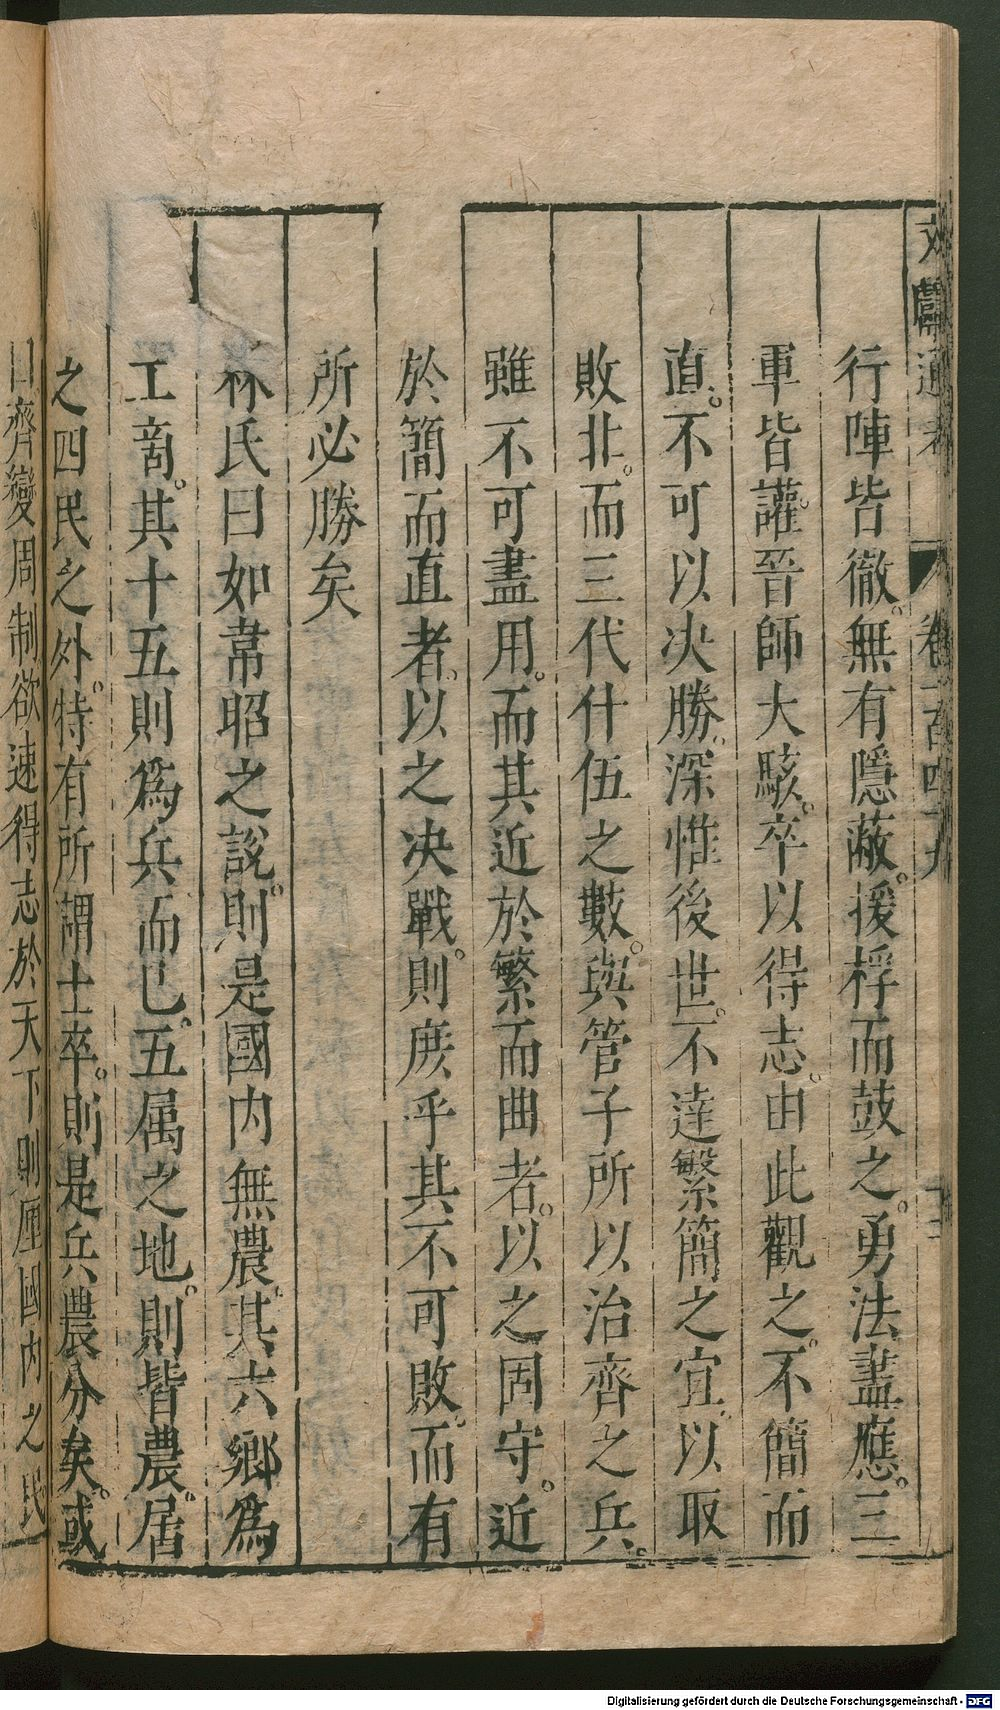 文獻通考 卷一百四十九 十三
行陣皆徹。無有隱蔽。援桴而鼓之。勇法盡應。三
軍皆讙。晉師大駭。卒以得志。由此觀之。不簡而
直。不可以决勝。深惟後世。不達繁簡之宜。以取
敗北。而三代什伍之數。與管子所以治齊之兵。
雖不可盡用。而其近於繁而曲者。以之固守。近
於簡而直者。以之决戰。則庶乎其不可敗。而有
所必勝矣
林氏曰如韋昭之說。則是國内無農。其六鄉為
工商。其十五則爲兵而已。五属之地。則皆農。居
之四民之外。特有所謂士卒。則是兵農分矣。或
曰齊變周制欲速得志於天下則鄽國内之民
Digitalisierung gefördert durch die Deutsche Forschungsgemeinschaft - DFG